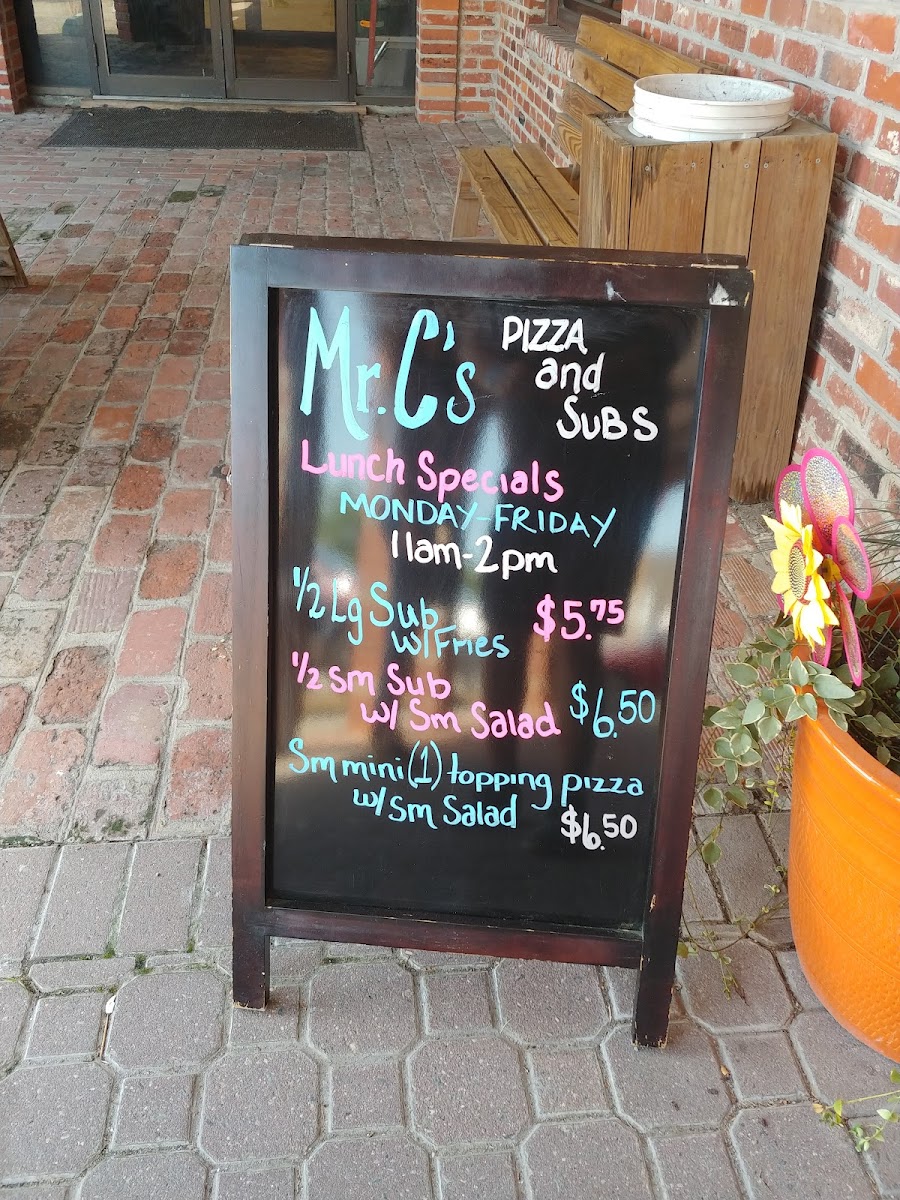 Mr. C's PIZZA
and
SUBS
Lunch Specials
MONDAY-FRIDAY
11am-2pm
1/2 Lg Sub $5.75
w/Fries
1/2 sm Sub
w/ Sm Salad $6.50
Sm mini (1) topping pizza
w/ Sm Salad $6.50